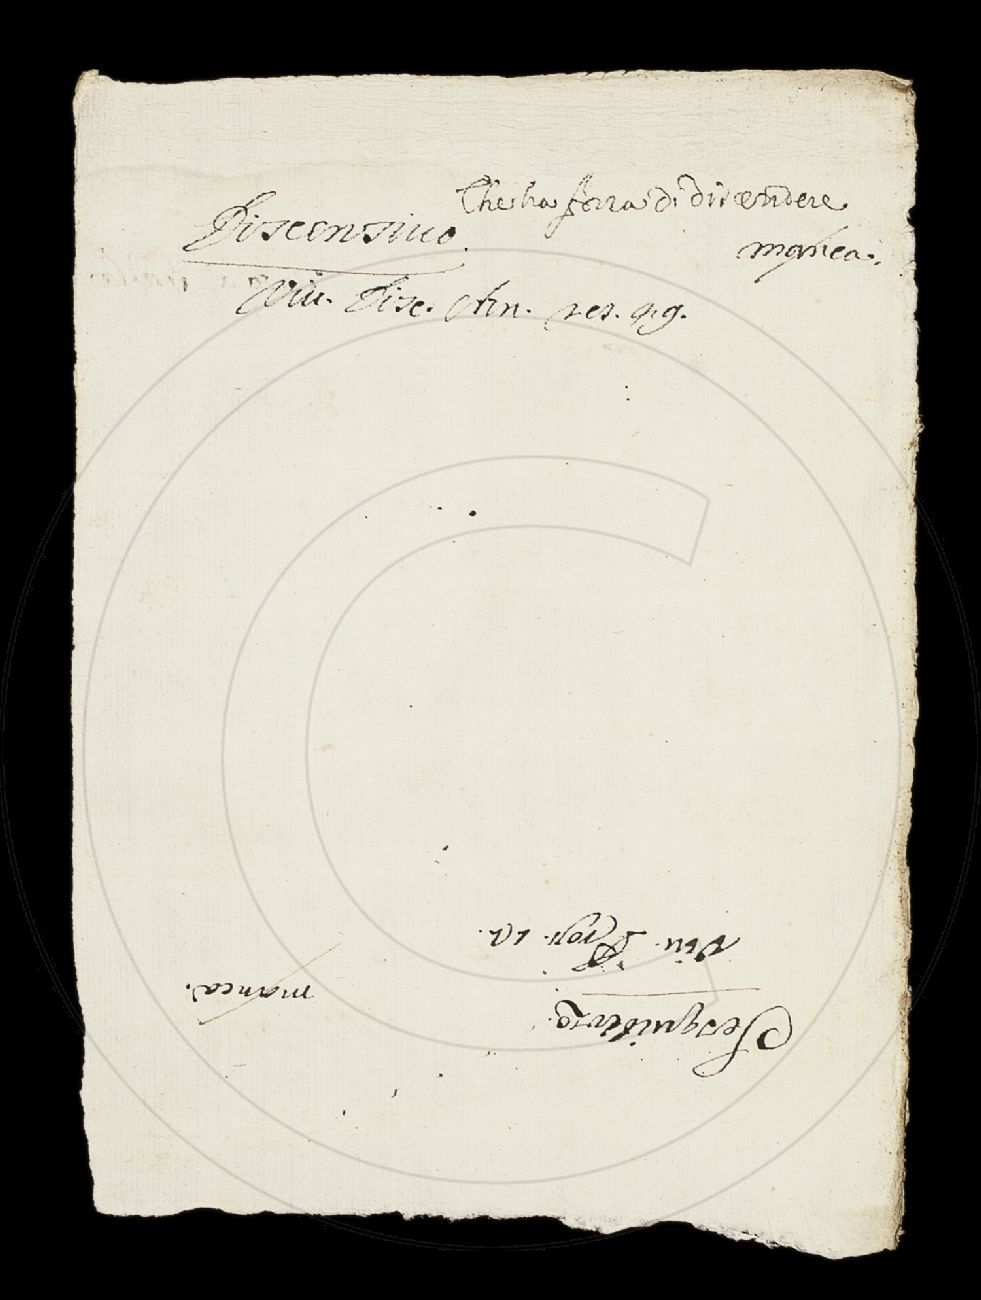 Discensiuo. Che ha forza di discendere
manca.
Viu. Disc. An. res. 49.
Sesquiterzo.
Viu. Prop. 12.
manca.